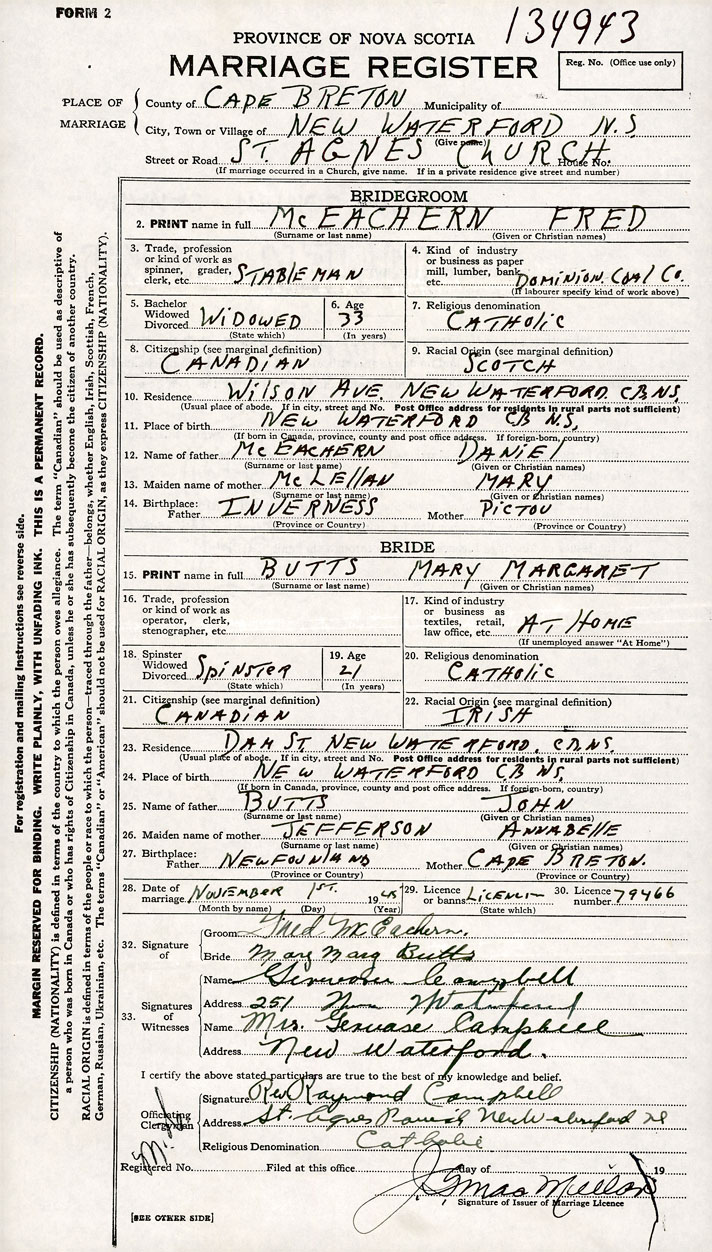 FORM 2
134943
PROVINCE OF NOVA SCOTIA
MARRIAGE REGISTER
Reg. No. (Office use only)
PLACE OF MARRIAGE
County of CAPE BRETON Municipality of
City, Town or Village of NEW WATERFORD N.S.
(Give name)
Street or Road ST. AGNES CHURCH House No.
(If marriage occurred in a Church, give name. If in a private residence give street and number)
BRIDEGROOM
2. PRINT name in full McEACHERN FRED
(Surname or last name) (Given or Christian names)
3. Trade, profession or kind of work as spinner, grader, clerk, etc. STABLEMAN
4. Kind of industry or business as paper mill, lumber, bank, etc. DOMINION COAL CO.
(If labourer specify kind of work above)
5. Bachelor Widowed Divorced WIDOWED
(State which)
6. Age 33
(In years)
7. Religious denomination
CATHOLIC
8. Citizenship (see marginal definition)
CANADIAN
9. Racial Origin (see marginal definition)
SCOTCH
10. Residence WILSON AVE. NEW WATERFORD. C.B. N.S.
(Usual place of abode. If in city, street and No. Post Office address for residents in rural parts not sufficient)
11. Place of birth NEW WATERFORD CB N.S.
(If born in Canada, province, county and post office address. If foreign-born, country)
12. Name of father McEACHERN DANIEL
(Surname or last name) (Given or Christian names)
13. Maiden name of mother McLELLAN MARY
(Surname or last name) (Given or Christian names)
14. Birthplace: Father INVERNESS Mother PICTOU
(Province or Country) (Province or Country)
BRIDE
15. PRINT name in full BUTTS MARY MARGARET
(Surname or last name) (Given or Christian names)
16. Trade, profession or kind of work as operator, clerk, stenographer, etc.
17. Kind of industry or business as textiles, retail, law office, etc. AT HOME
(If unemployed answer "At Home")
18. Spinster Widowed Divorced SPINSTER
(State which)
19. Age 21
(In years)
20. Religious denomination
CATHOLIC
21. Citizenship (see marginal definition)
CANADIAN
22. Racial Origin (see marginal definition)
IRISH
23. Residence DAM ST. NEW WATERFORD. C.B. N.S.
(Usual place of abode. If in city, street and No. Post Office address for residents in rural parts not sufficient)
24. Place of birth NEW WATERFORD CB N.S.
(If born in Canada, province, county and post office address. If foreign-born, country)
25. Name of father BUTTS JOHN
(Surname or last name) (Given or Christian names)
26. Maiden name of mother JEFFERSON ANNABELLE
(Surname or last name) (Given or Christian names)
27. Birthplace: Father NEWFOUNLAND Mother CAPE BRETON.
(Province or Country) (Province or Country)
28. Date of marriage NOVEMBER 1ST. 1945
(Month by name) (Day) (Year)
29. Licence or banns
(State which)
30. Licence number 79466
32. Signature of
Groom Fred McEachern.
Bride Mary Marg Butts
33. Signatures of Witnesses
Name Campbell
Address 251 Waterford
Name Mrs. Gervase Campbell
Address New Waterford.
I certify the above stated particulars are true to the best of my knowledge and belief.
Officiating Clergyman
Signature Rev Raymond Campbell
Address St. Agnes Parish New Waterford
Religious Denomination Catholic
Registered No. Filed at this office day of 19
Signature of Issuer of Marriage Licence
[SEE OTHER SIDE]
For registration and mailing instructions see reverse side.
MARGIN RESERVED FOR BINDING. WRITE PLAINLY, WITH UNFADING INK. THIS IS A PERMANENT RECORD.
CITIZENSHIP (NATIONALITY) is defined in terms of the country to which the person owes allegiance. The term "Canadian" should be used as descriptive of
a person who was born in Canada or who has rights of Citizenship in Canada, unless he or she has subsequently become the citizen of another country.
RACIAL ORIGIN is defined in terms of the people or race to which the person—traced through the father—belongs, whether English, Irish, Scottish, French,
German, Russian, Ukrainian, etc. The terms "Canadian" or "American" should not be used for RACIAL ORIGIN, as they express CITIZENSHIP (NATIONALITY).